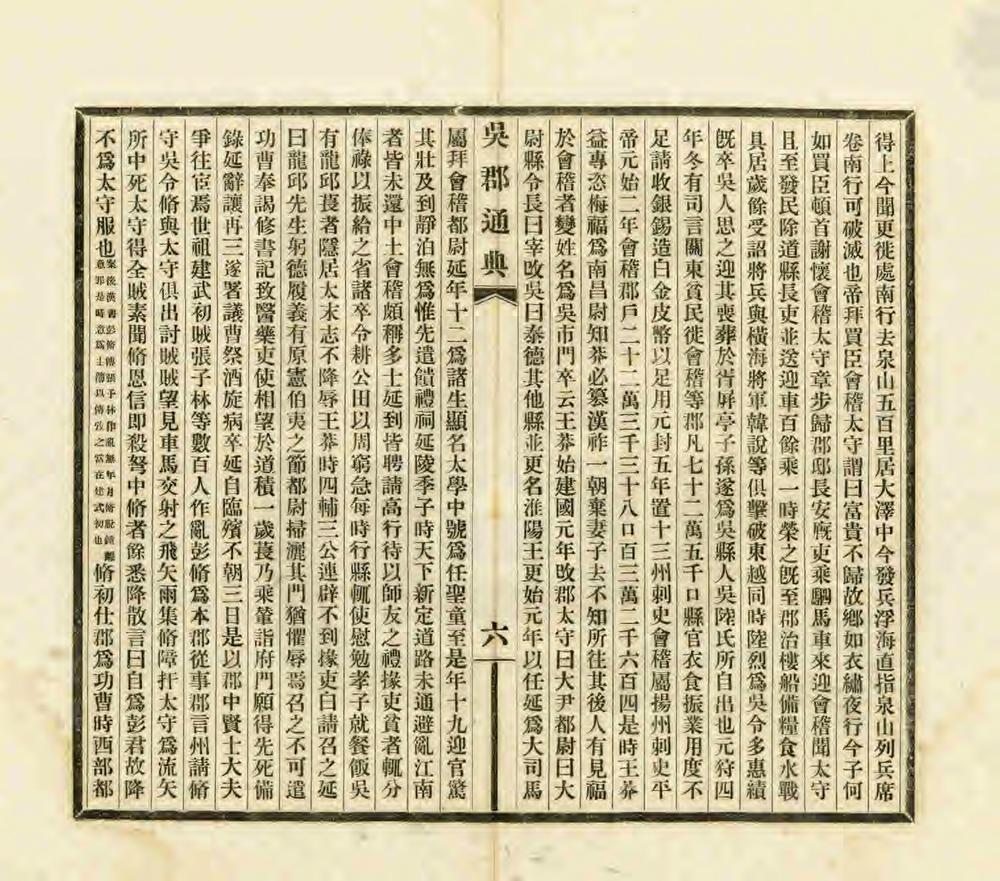 得上今聞更徙處南行去泉山五百里居大澤中今發兵浮海直指泉山列兵席
卷南行可破滅也帝拜買臣會稽太守謂曰富貴不歸故鄉如衣繡夜行今子何
如買臣頓首謝懷會稽太守章步歸郡邸長安廄吏乘駟馬車來迎會稽聞太守
且至發民除道縣長吏並送迎車百餘乘一時榮之旣至郡治樓船備糧食水戰
具居歲餘受詔將兵與橫海將軍韓說等俱擊破東越同時陸烈爲吳令多惠績
旣卒吳人思之迎其喪葬於胥屏亭子孫遂爲吳縣人吳陸氏所自出也元狩四
年冬有司言關東貧民徙會稽等郡凡七十二萬五千口縣官衣食振業用度不
足請收銀錫造白金皮幣以足用元封五年置十三州刺史會稽屬揚州刺史平
帝元始二年會稽郡戶二十二萬三千三十八口百三萬二千六百四是時王莽
益專恣梅福爲南昌尉知莽必篡漢祚一朝棄妻子去不知所往其後人有見福
於會稽者變姓名爲吳市門卒云王莽始建國元年改郡太守曰大尹都尉曰大
尉縣令長曰宰改吳曰泰德其他縣並更名淮陽王更始元年以任延爲大司馬
吳郡通典
六
屬拜會稽都尉延年十二爲諸生顯名太學中號爲任聖童至是年十九迎官驚
其壯及到靜泊無爲惟先遣饋禮祠延陵季子時天下新定道路未通避亂江南
者皆未還中土會稽頗稱多士延到皆聘請高行待以師友之禮掾吏貧者輒分
俸祿以振給之省諸卒令耕公田以周窮急每時行縣輒使慰勉孝子就餐飯吳
有龍邱萇者隱居太末志不降辱王莽時四輔三公連辟不到掾吏白請召之延
曰龍邱先生躬德履義有原憲伯夷之節都尉掃灑其門猶懼辱焉召之不可遣
功曹奉謁修書記致醫藥吏使相望於道積一歲萇乃乘輦詣府門願得先死備
錄延辭讓再三遂署議曹祭酒旋病卒延自臨殯不朝三日是以郡中賢士大夫
爭往宦焉世祖建武初賊張子林等數百人作亂彭脩爲本郡從事郡言州請脩
守吳令脩與太守俱出討賊賊望見車馬交射之飛矢雨集脩障扞太守爲流矢
所中死太守得全賊素聞脩恩信即殺弩中脩者餘悉降散言曰自爲彭君故降
不爲太守服也案後漢書彭脩傳張子林作亂無年月脩脫鍾離意罪是時意爲主簿以傳攷之當在建武初也脩初仕郡爲功曹時西部都